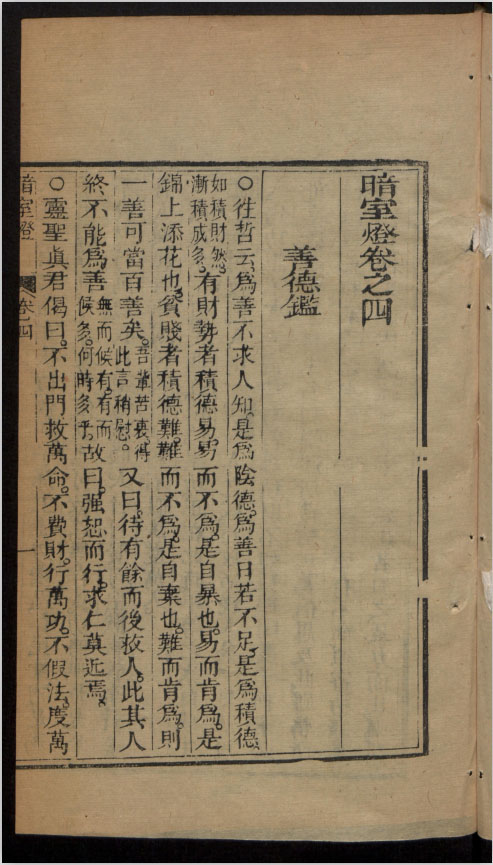 暗室燈卷之四
善德鑑
○徃哲云。爲善不求人知。是爲陰德。爲善日若不足。是爲積德
如積財然。漸積成多。有財勢者積德易。易而不爲。是自暴也。易而肯爲。是
錦上添花也。貧賤者積德難。難而不爲。是自棄也。難而肯爲。則
一善可當百善矣。吾輩苦衷得此言稍慰。又曰。待有餘而後救人。此其人
終不能爲善無而候有。有而候多。何時多乎。故曰。強恕而行。求仁莫近焉。
○靈聖眞君偈曰。不出門。救萬命。不費財。行萬功。不假法。度萬
暗室燈 卷四 一